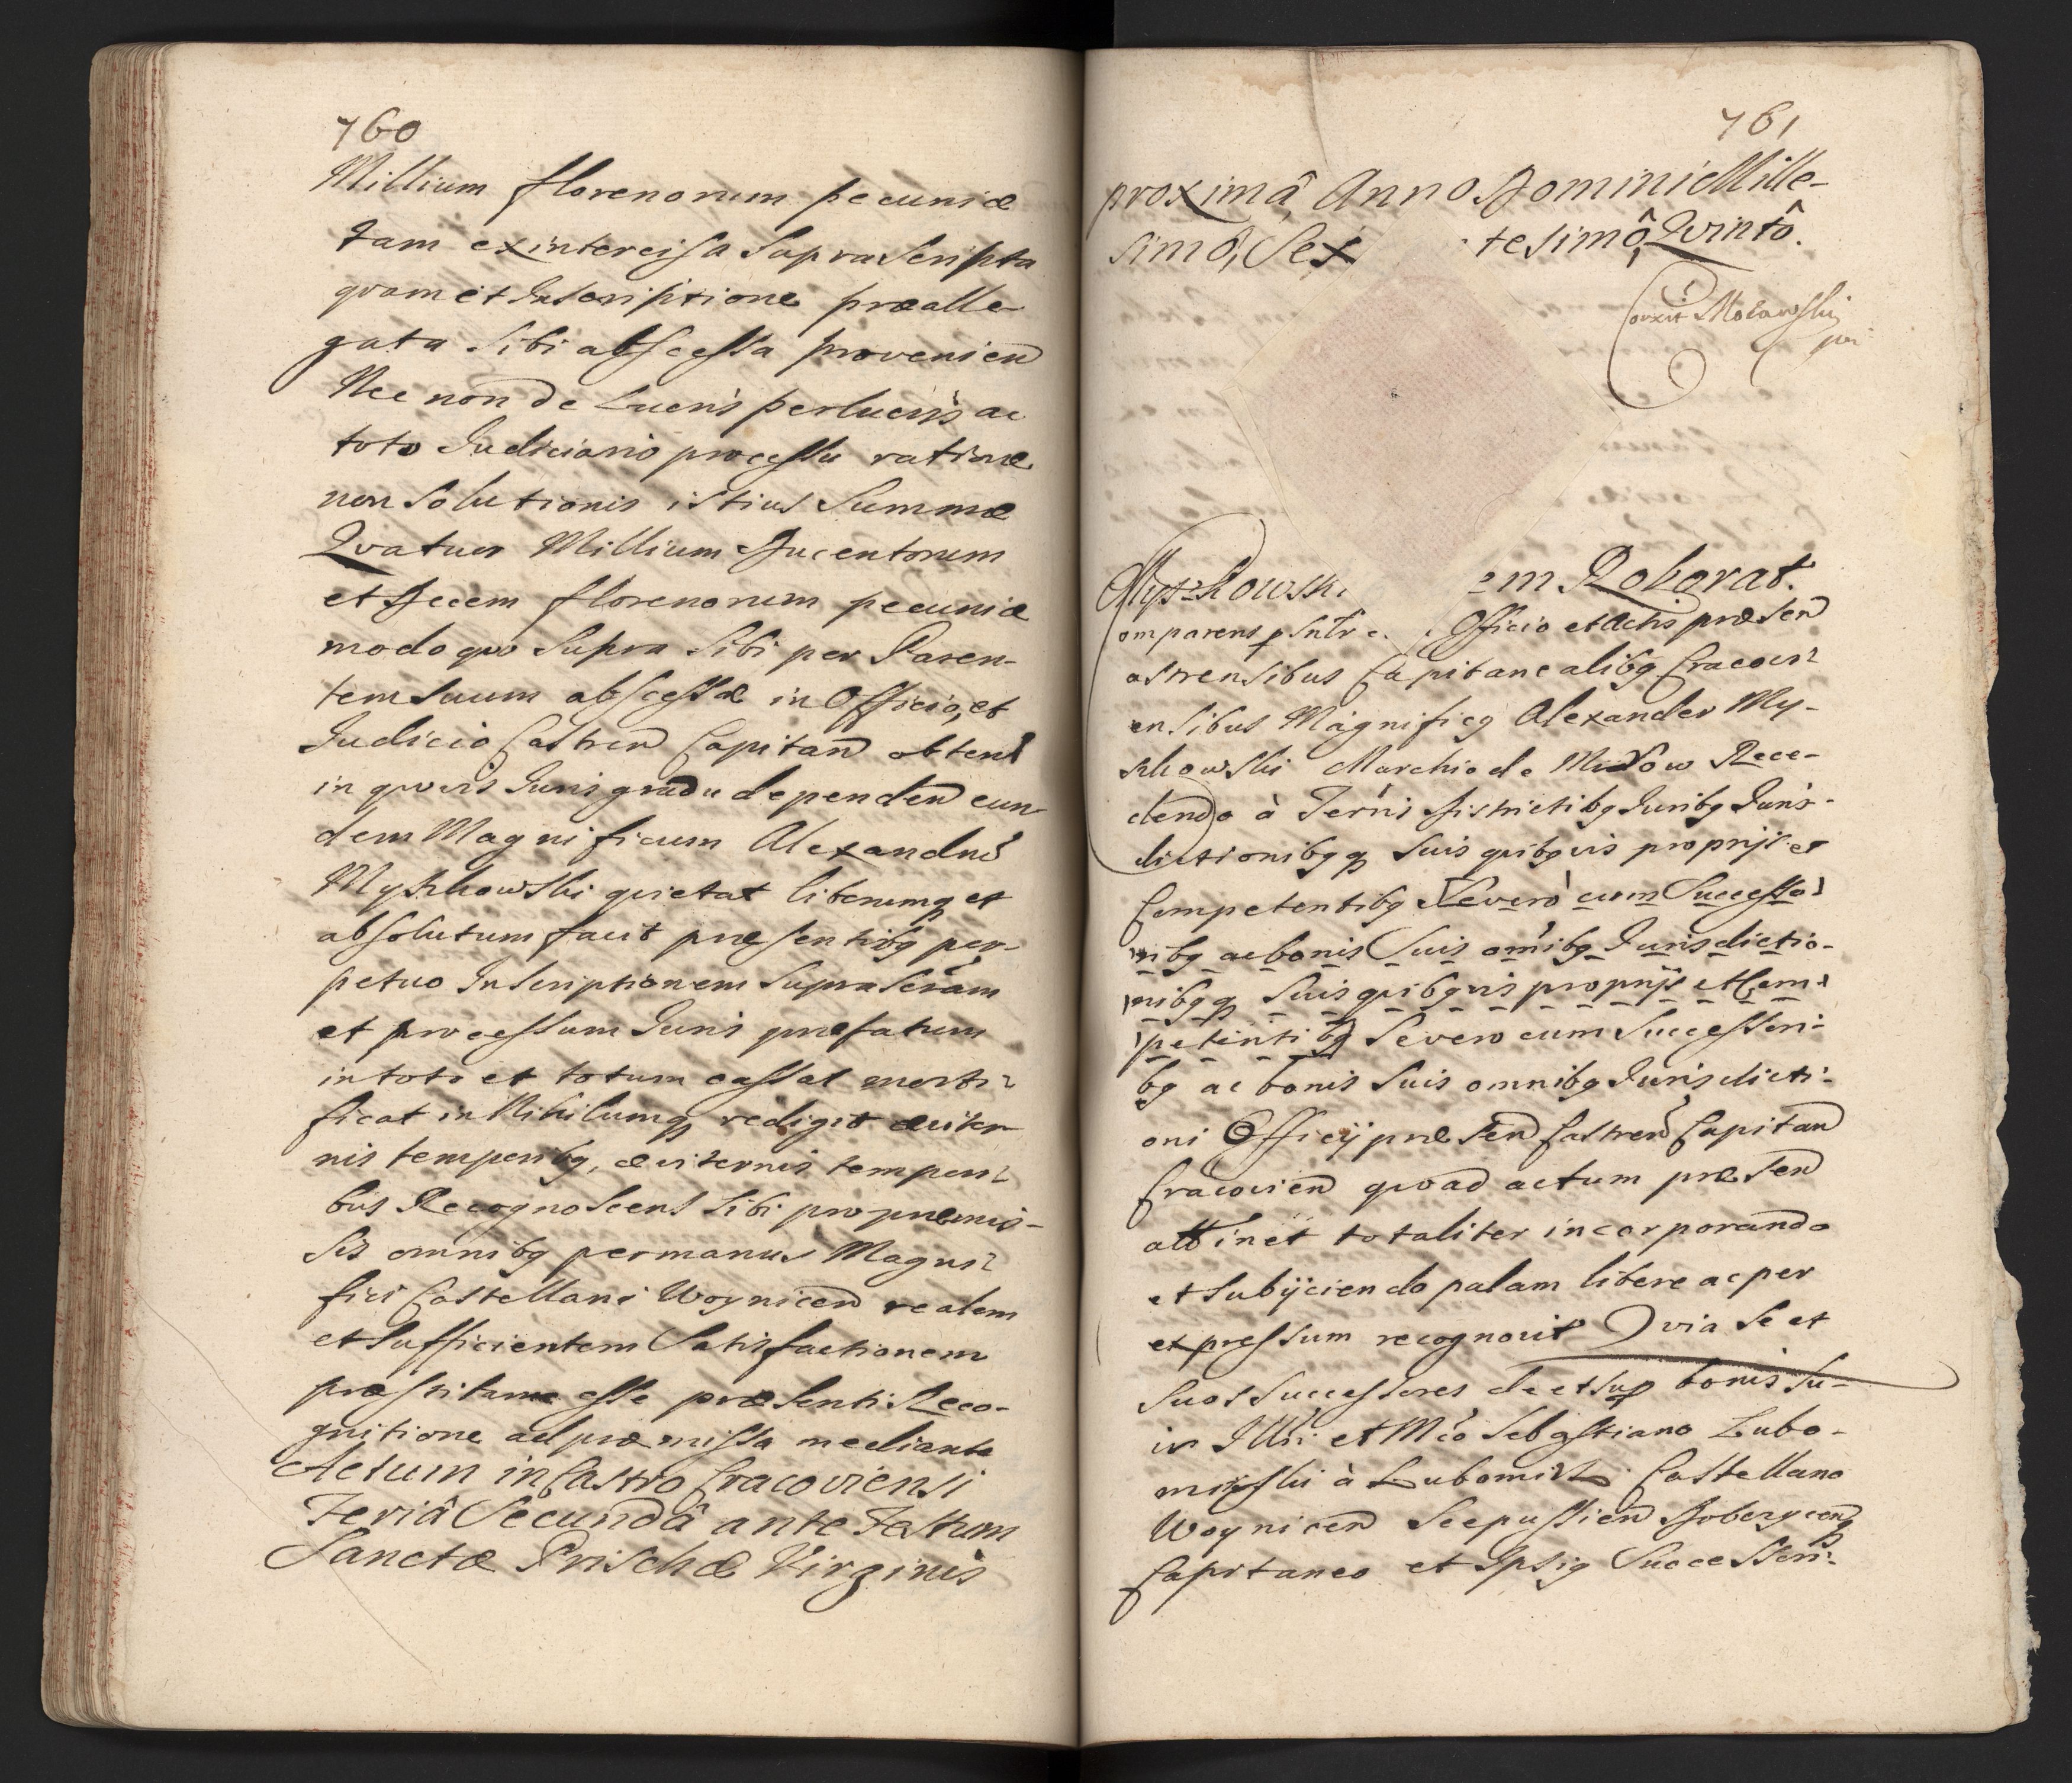 760
Millium florenorum pecuniæ
tam ex intercisa supra scripta
quam et Inscriptione prealle-
gata sibi abscessa provenien
Nec non de Lucris perlucris ac
toto Judiciario processu ratione
non solutionis istius Summæ
Quatuor Millium Ducentorum
et Decem florenorum pecuniæ
modo quo supra sibi per Paren-
tem suum abscessæ in Officio, et
Judicio Castren Capitan obtent
in quovis Juris gradu dependen eun-
dem Magnificum Alexandrū
Myszkowski quietat liberumq et
absolutum facit præsentibq per-
petuo Inscriptionem supra scram
et processum Juris præfatum
in toto et totum cassat morti-
ficat in Nihilumq redigit æviter
nis temperibq, æviternis tempori-
bus Recognoscens sibi pro præmis-
sis omnibq per manus Magni-
fici Castellani Woynicen realem
et sufficientem Satisfactionem
præstitam esse præsenti Reco-
gnitione ad præmissa mediante
Actum in Castro Cracoviensi
Feriâ Secundâ ante Festum
Sanctæ Prischæ Virginis
761
proximâ, Anno Domini Mille-
simô, Sex tesimô, Quintô.
Morawski
Myszkowski em Roborat.
omparens Officio et Actis præsen
astrensibus Capitanealibq Cracovi-
ensibus Magnificq Alexander My-
szkowski Marchio de Mirow Rece-
dendo à Terris Districtibq Juribq Juris-
dictionibqq suis quibqvis proprijs et
Competentibq Severo cum Successo-
ribq ac bonis Suis omibq Jurisdictio-
nibqq suis quibqvis proprijs et Com-
petentibq Severo cum Successori-
bq ac bonis suis omnibq Jurisdicti-
oni Officij præsen Castren Capitan
Cracovien quoad actum præsen
attinet totaliter incorporando
et subijciendo palam libere ac per
expressum recognovit Quia se et
suos successores de et sup bonis su-
is Illri et Mco Sebastiano Lubo-
mirski à Lubomirz Castellano
Woynicen Scepusien Dobczycenq
Capitaneo et Ipsiq Successori-